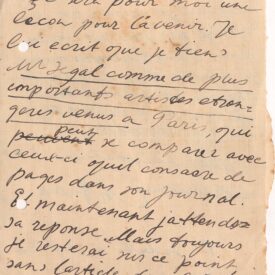 sera pour moi une
leçon pour l'avenir. Je
lui ecrit que je tiens
Mr Segal comme de plus
importants artistes etran-
gers venus a Paris, qui
peuvent peux se comparer avec
ceux-ci qu'il consacre de
pages dans son journal.
Et maintenant j'attends
sa reponse. Mais toujours
je resterai sur ce point
sans l'article